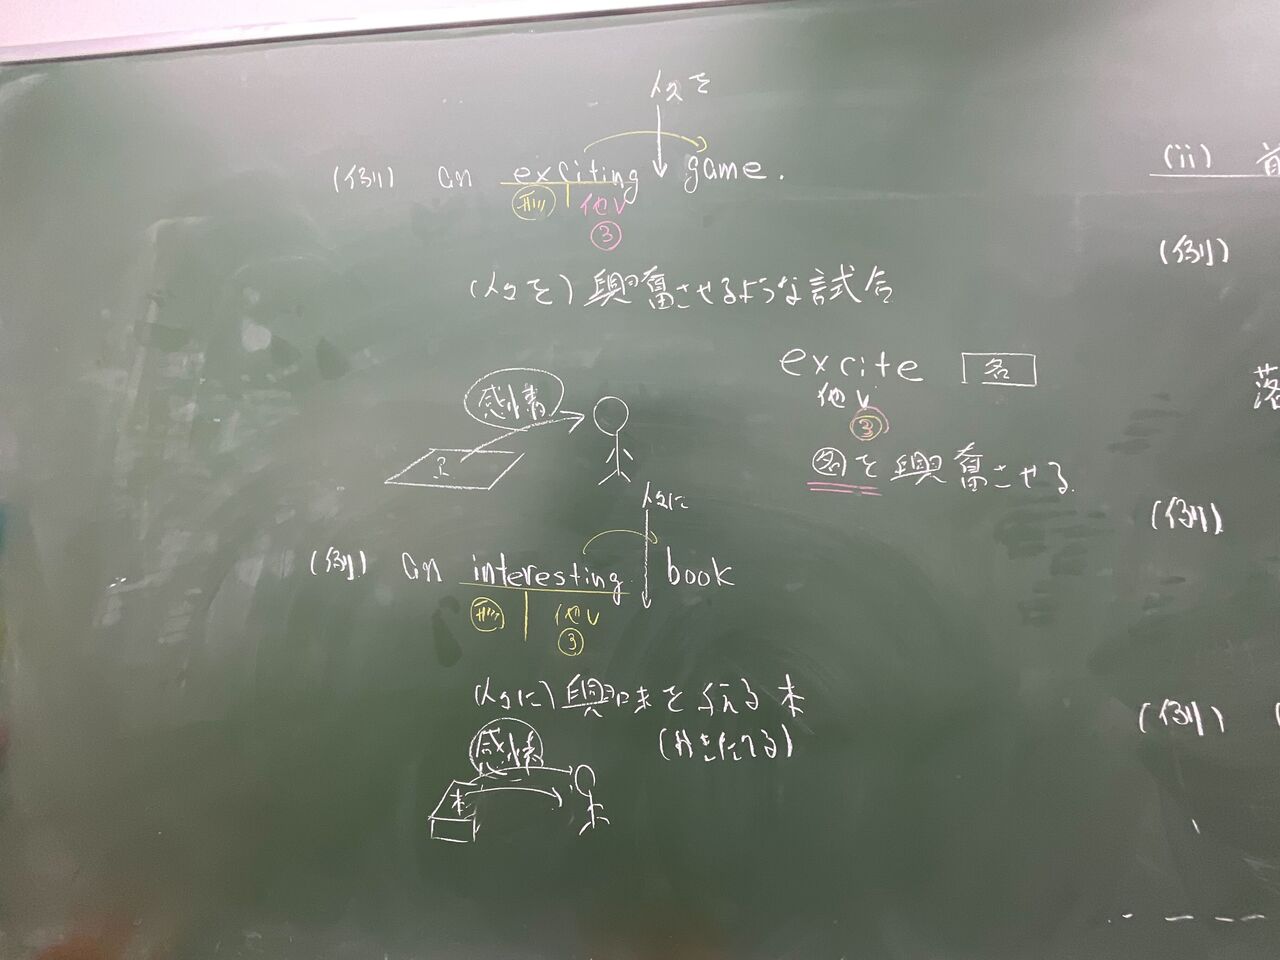 人々を
(例) an exciting game.
形 他V
③
(人々を) 興奮させるような試合
excite 名
他V
③
名を興奮させる
感情
人々に
(例) an interesting book
形 他V
③
(人々に) 興味を与える本
(かきたてる)
感情
本
(ii) 
(例)
落
(例)
(例)